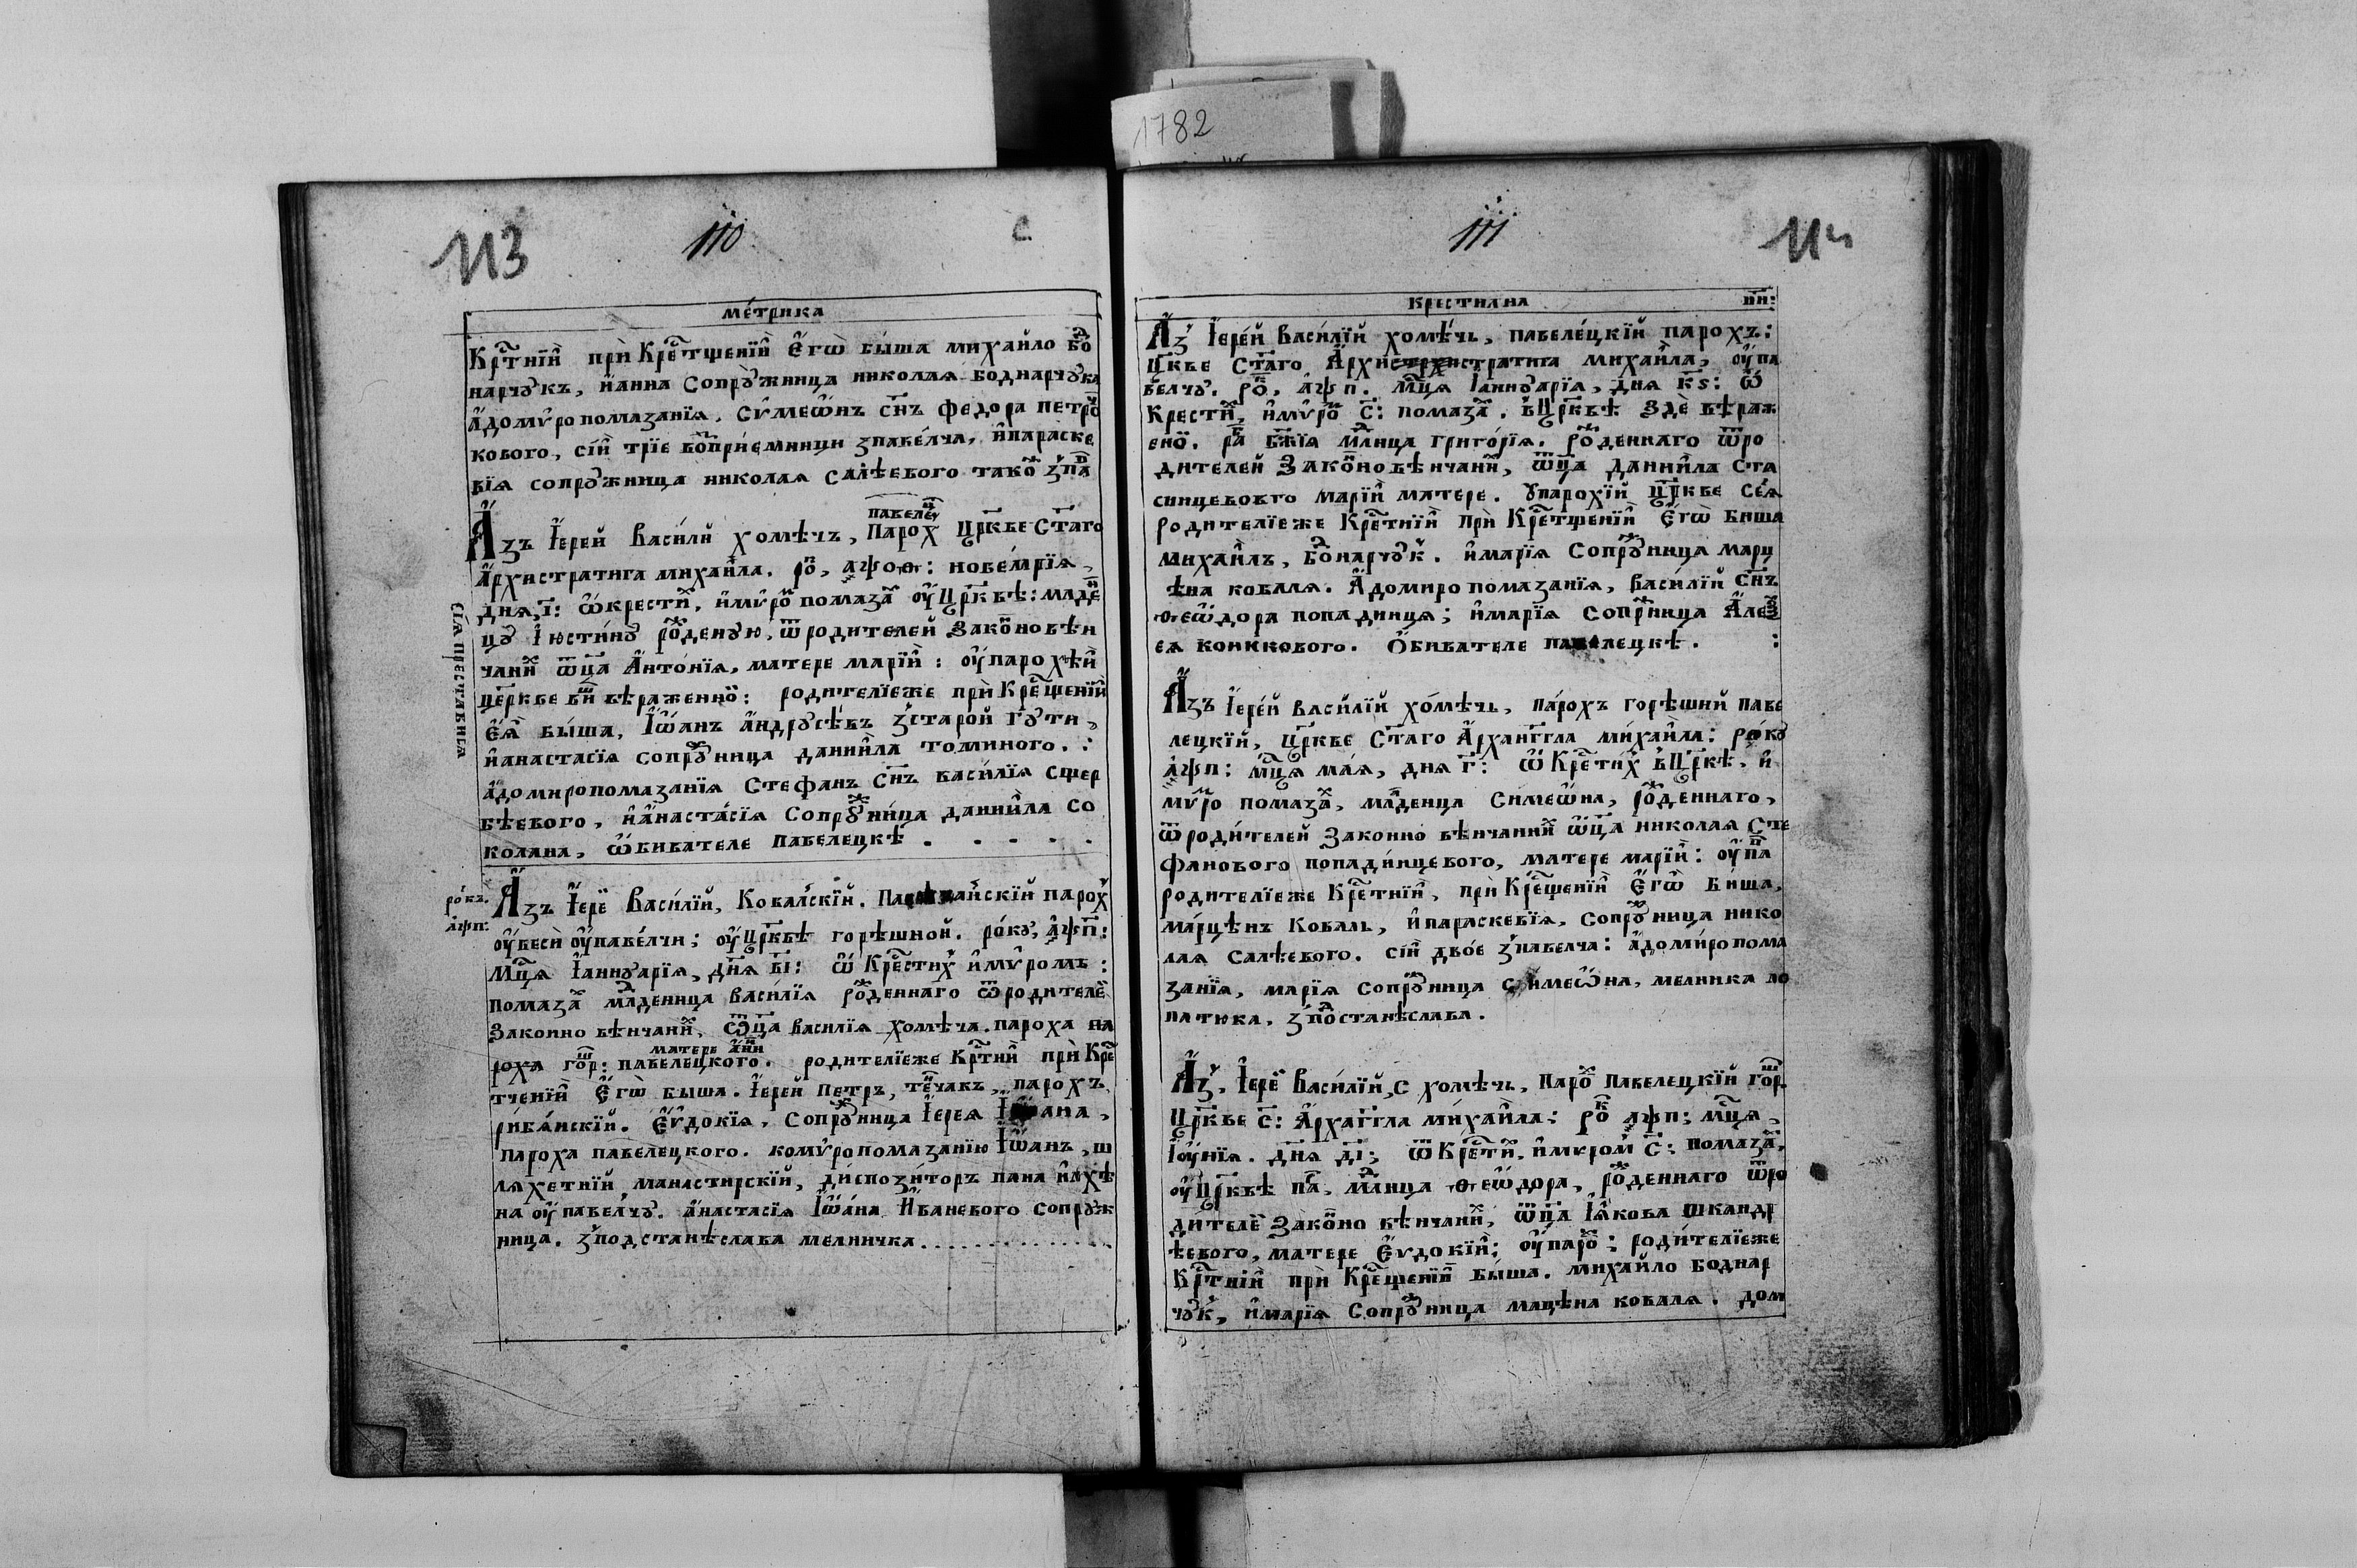 1782
113
110
с
метрика
Крⷭ҇тнїи при Крⷭ҇тщенїи Єгѡ быша михайло боⷣ
нарчꙋкъ, и анна сопрꙋжница николая боднарчꙋка
а до мѵропомазанїя. сѵмеѡнъ сн҃ъ федора петрꙋ
кового, сїи трїе воⷭ҇прїемници зпавелча, и параске
вїя сопрꙋжница николая салѣевого тако зпаⷡ
павелеⷰ
Азъ Їерей Василй хомѣчъ, Парохⷯ Цр҃кве Ст҃аго
Архистратига михаила. роⷦ, ҂аѱоѳ: новемрїя,
дня, і҃: Ѡкрестиⷯ, и мѵроⷨ помазаⷯ оу Цр҃квѣ: младеⷩ
цꙋ Їюстинꙋ роⷤденꙋю, ѿродителей Законовѣн
чаниⷯ ѿц҃а Антонїя, матере марїи: оупарохѣи
церкве виⷲ вѣраженнѡ: родителїеже при Крⷭ҇щенїи
Єя быша, Їѡанъ андрꙋсѣвъ зстарой гꙋти,
и анастасїя сопрꙋⷤница даниила томиного. :
а до миропомазанїя Стефанъ сн҃ъ василїя сщер
бѣевого, и анастасїя Сопрꙋⷤница даниила со
колана, Ѡбивателе Павелецкѣ . . . . .
сїѧ преставися
рокъ.
҂аѱп:
Азъ Їерей Василїй, Ковалскїй. парохⷯ
оувеси оупавелчи; оу Цр҃квѣ горѣшной. рокꙋ, ҂аѱп:
Мц҃я Їаннꙋарїя, дня в҃і: Ѡ Крⷭ҇тихⷯ и мѵромъ:
помазаⷯ млⷣденца василїя роⷤденнаго ѿродителеⷨ
Законно вѣнчаниⷯ, Ѿц҃а василїя хомѣча. пароха па
роха гоⷬ: павелецкого. родителїеже Крⷭ҇тнїи при Крⷭ҇
матере анни
тченїи Єгѡ быша. Їерей Петръ, течакъ, парохъ
рибянскїй. Єѵдокїя, сопрꙋⷤница Їерея Їѡана,
пароха павелецкого. ко мѵропомазанїю Їѡанъ, ш
ляхетнїй, манастирскїй, диспозиторъ пана
на оу павелчꙋ. анастасїя Їѡана Иваневого сопрꙋж
ница. зподстанѣслава мелничка . . . . . . . . . . . .
111
114
Крестилна
пи:
Аз Їерей Василїй хомѣчь, павелецкїй парохъ:
Цр҃кве Ст҃аго Архистратига михаила, оупа
велчꙋ. роⷦ, ҂аѱп. мц҃я Їаннꙋарїя, дня к҃ѕ: Ѡ
Крестиⷯ, и мѵроⷨ С: помазаⷯ. в Цр҃квѣ Здѣ вѣраж
енѡ. раⷠ бж҃їя млⷣнца григорїя. роⷤденнаго ѿро
дителей Законовѣнчаниⷯ, ѿц҃а даниила ста
синцевовго марїи матере. ꙋпарохїи Цр҃кве сея
родителїеже Крⷭ҇тнїи при Крⷭ҇тщенїи Єгѡ биша
михаилъ, боⷣнарчꙋк. и марїя Сопрꙋⷤница марц
ѣна коваля. А до миропомазанїя, василїй сн҃ъ
ѳеѡдора попадинця; и марїя Сопрꙋⷤница Алеѯ
ея коникового. Обивателе павелецкѣ. :
Азъ Їерей василїй хомѣчь, парохъ горѣшнїй паве
лецкїй, Цр҃кве Ст҃аго Архангг҃ла михаила: рокꙋ
҂аѱп: мц҃я мая, дня г҃: Ѡ Крⷭ҇тихⷯ в Црк҃ѣ, и
мѵро помазаⷯ, млⷣденца симеѡна, роⷤденнаго,
ѿродителей Законно вѣнчанниⷯ ѿц҃а николая Сте
фанового попадинцевого, матере марїи: оупаⷬ
родителїеже Крⷭ҇тнїи, при Крⷭ҇щенїи Єгѡ биша,
марцѣнъ Коваль, и параскевїя, сопрꙋⷤница нико
лая Салѣевого. сїи двое зпавелча: а до миропома
занїя, марїя сопрꙋⷤница симеѡна, мелника ло
патюка. зпоⷣстанѣслава.
Аз, Їерей Василїй, С хомѣчь, Пароⷯ Павелецкїй гоⷬ
Цр҃кве С: Архагг҃ла михаила: роⷦ ҂аѱп; мц҃я,
Їоунїя. дн҃я д҃і; ѿКрⷭ҇тиⷯ, и мѵромⷨ С: помазаⷯ,
оу Цр҃квѣ паⷡ, млⷣнца ѳеѡдора, роⷤденнаго ѿро
дителеⷨ Законо вѣнчаниⷯ, ѿц҃а Їякова шкандр
ѣевого, матере Єѵдокїи; оупароⷯ; родителїеже
Крⷭ҇тнїи при Крⷭ҇щенїи быша. михайло Боднар
чꙋк, и марїя Сопрꙋⷤница мацѣна коваля. дом